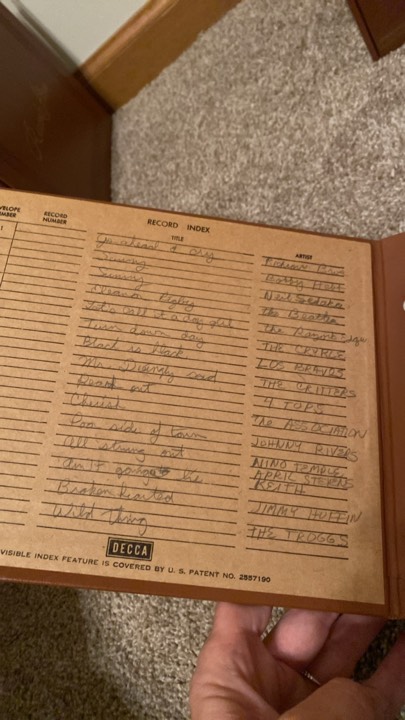 VELOPE RECORD
MBER NUMBER
RECORD INDEX
TITLE ARTIST
Sunny Bobby Hebb
Sunny Neil Sedaka
Eleanor Rigby The Beatles
Let's call it a day girl The Razor's Edge
Turn down day THE CYRKLE
Black is Black LOS BRAVOS
Mr. Dieingly sad THE CRITTERS
Reach out 4 TOPS
Cherish The ASSOCIATION
Poor side of town JOHNNY RIVERS
All strung out NINO TEMPLE
APRIL STEVENS
Ain't gonna lie KEITH
Broken hearted JIMMY RUFFIN
Wild Thing THE TROGGS
DECCA
VISIBLE INDEX FEATURE IS COVERED BY U. S. PATENT NO. 2557190